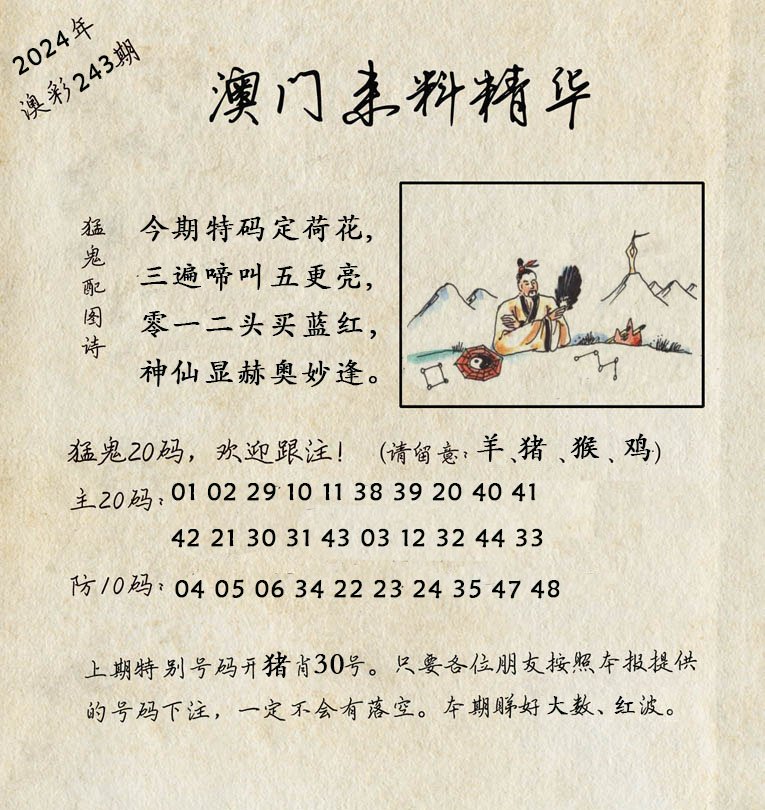 2024年
澳彩243期
澳门来料精华
猛鬼配图诗
今期特码定荷花，
三遍啼叫五更亮，
零一二头买蓝红，
神仙显赫奥妙逢。
猛鬼20码，欢迎跟注！（请留意：羊、猪、猴、鸡）
主20码：01 02 29 10 11 38 39 20 40 41
42 21 30 31 43 03 12 32 44 33
防10码：04 05 06 34 22 23 24 35 47 48
上期特别号码开猪肖30号。只要各位朋友按照本报提供
的号码下注，一定不会有落空。本期睇好大数、红波。